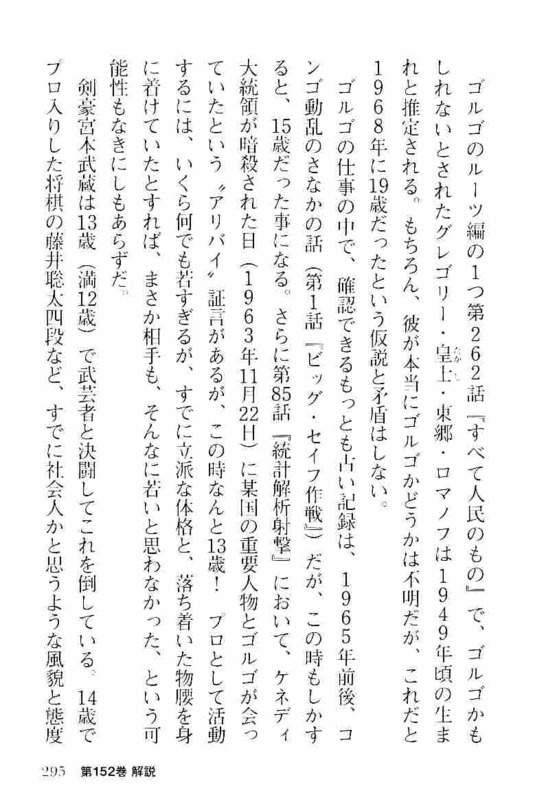 ゴルゴのルーツ編の1つ第262話『すべて人民のもの』で、ゴルゴかも
しれないとされたグレゴリー・皇士・東郷・ロマノフは1949年頃の生ま
たかし
れと推定される。もちろん、彼が本当にゴルゴかどうかは不明だが、これだと
1968年に19歳だったという仮説と矛盾はしない。
ゴルゴの仕事の中で、確認できるもっとも古い記録は、1965年前後、コ
ンゴ動乱のさなかの話（第1話『ビッグ・セイフ作戦』）だが、この時もしかす
ると、15歳だった事になる。さらに第85話『統計解析射撃』において、ケネディ
大統領が暗殺された日（1963年11月22日）に某国の重要人物とゴルゴが会っ
ていたという〝アリバイ〟証言があるが、この時なんと13歳！　プロとして活動
するには、いくら何でも若すぎるが、すでに立派な体格と、落ち着いた物腰を身
に着けていたとすれば、まさか相手も、そんなに若いと思わなかった、という可
能性もなきにしもあらずだ。
剣豪宮本武蔵は13歳（満12歳）で武芸者と決闘してこれを倒している。14歳で
プロ入りした将棋の藤井聡太四段など、すでに社会人かと思うような風貌と態度
295 第152巻 解説